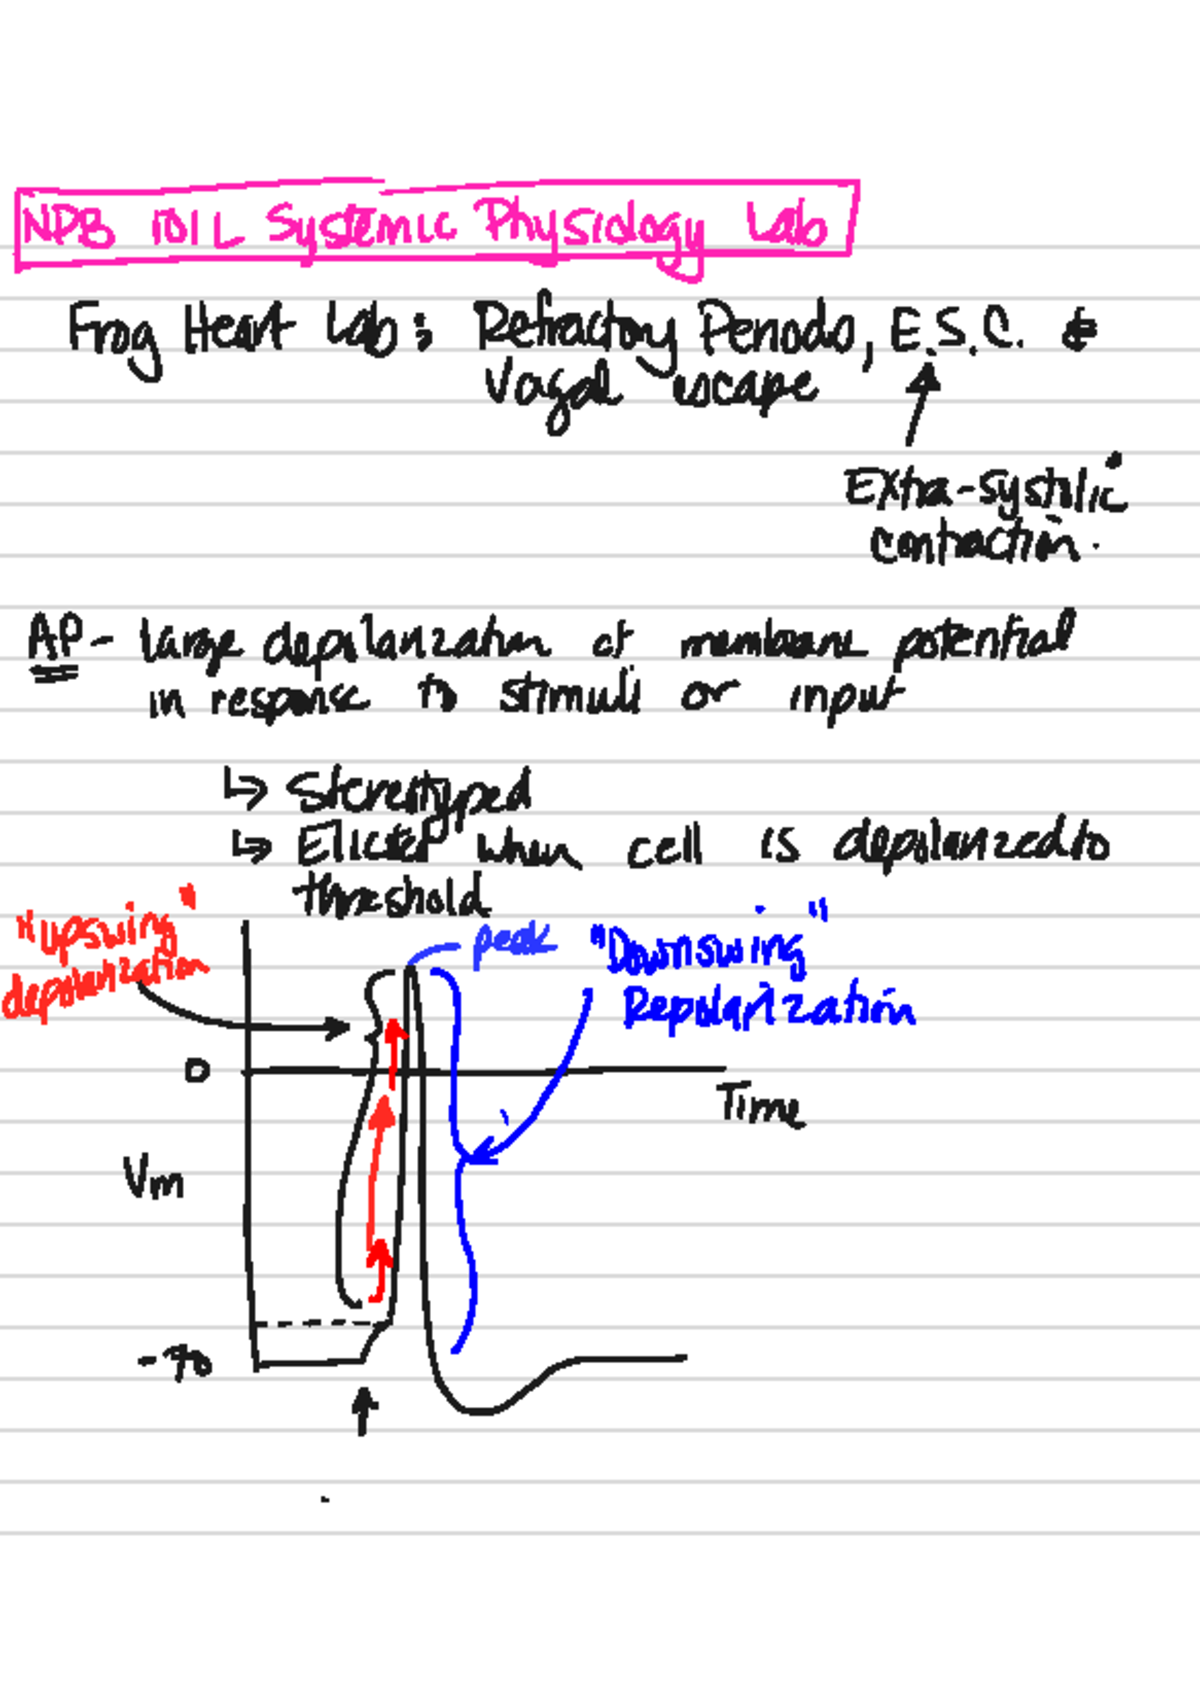 NPB 101L Systemic Physiology Lab
Frog Heart Lab: Refractory Periods, E.S.C. &
Vagal escape
Extra-systolic
contraction.
AP - large depolarization of membrane potential
in response to stimuli or input
↳ Stereotyped
↳ Elicited when cell is depolarized to
threshold
"upswing"
depolarization
peak
"Downswing"
Repolarization
0
Time
Vm
-70